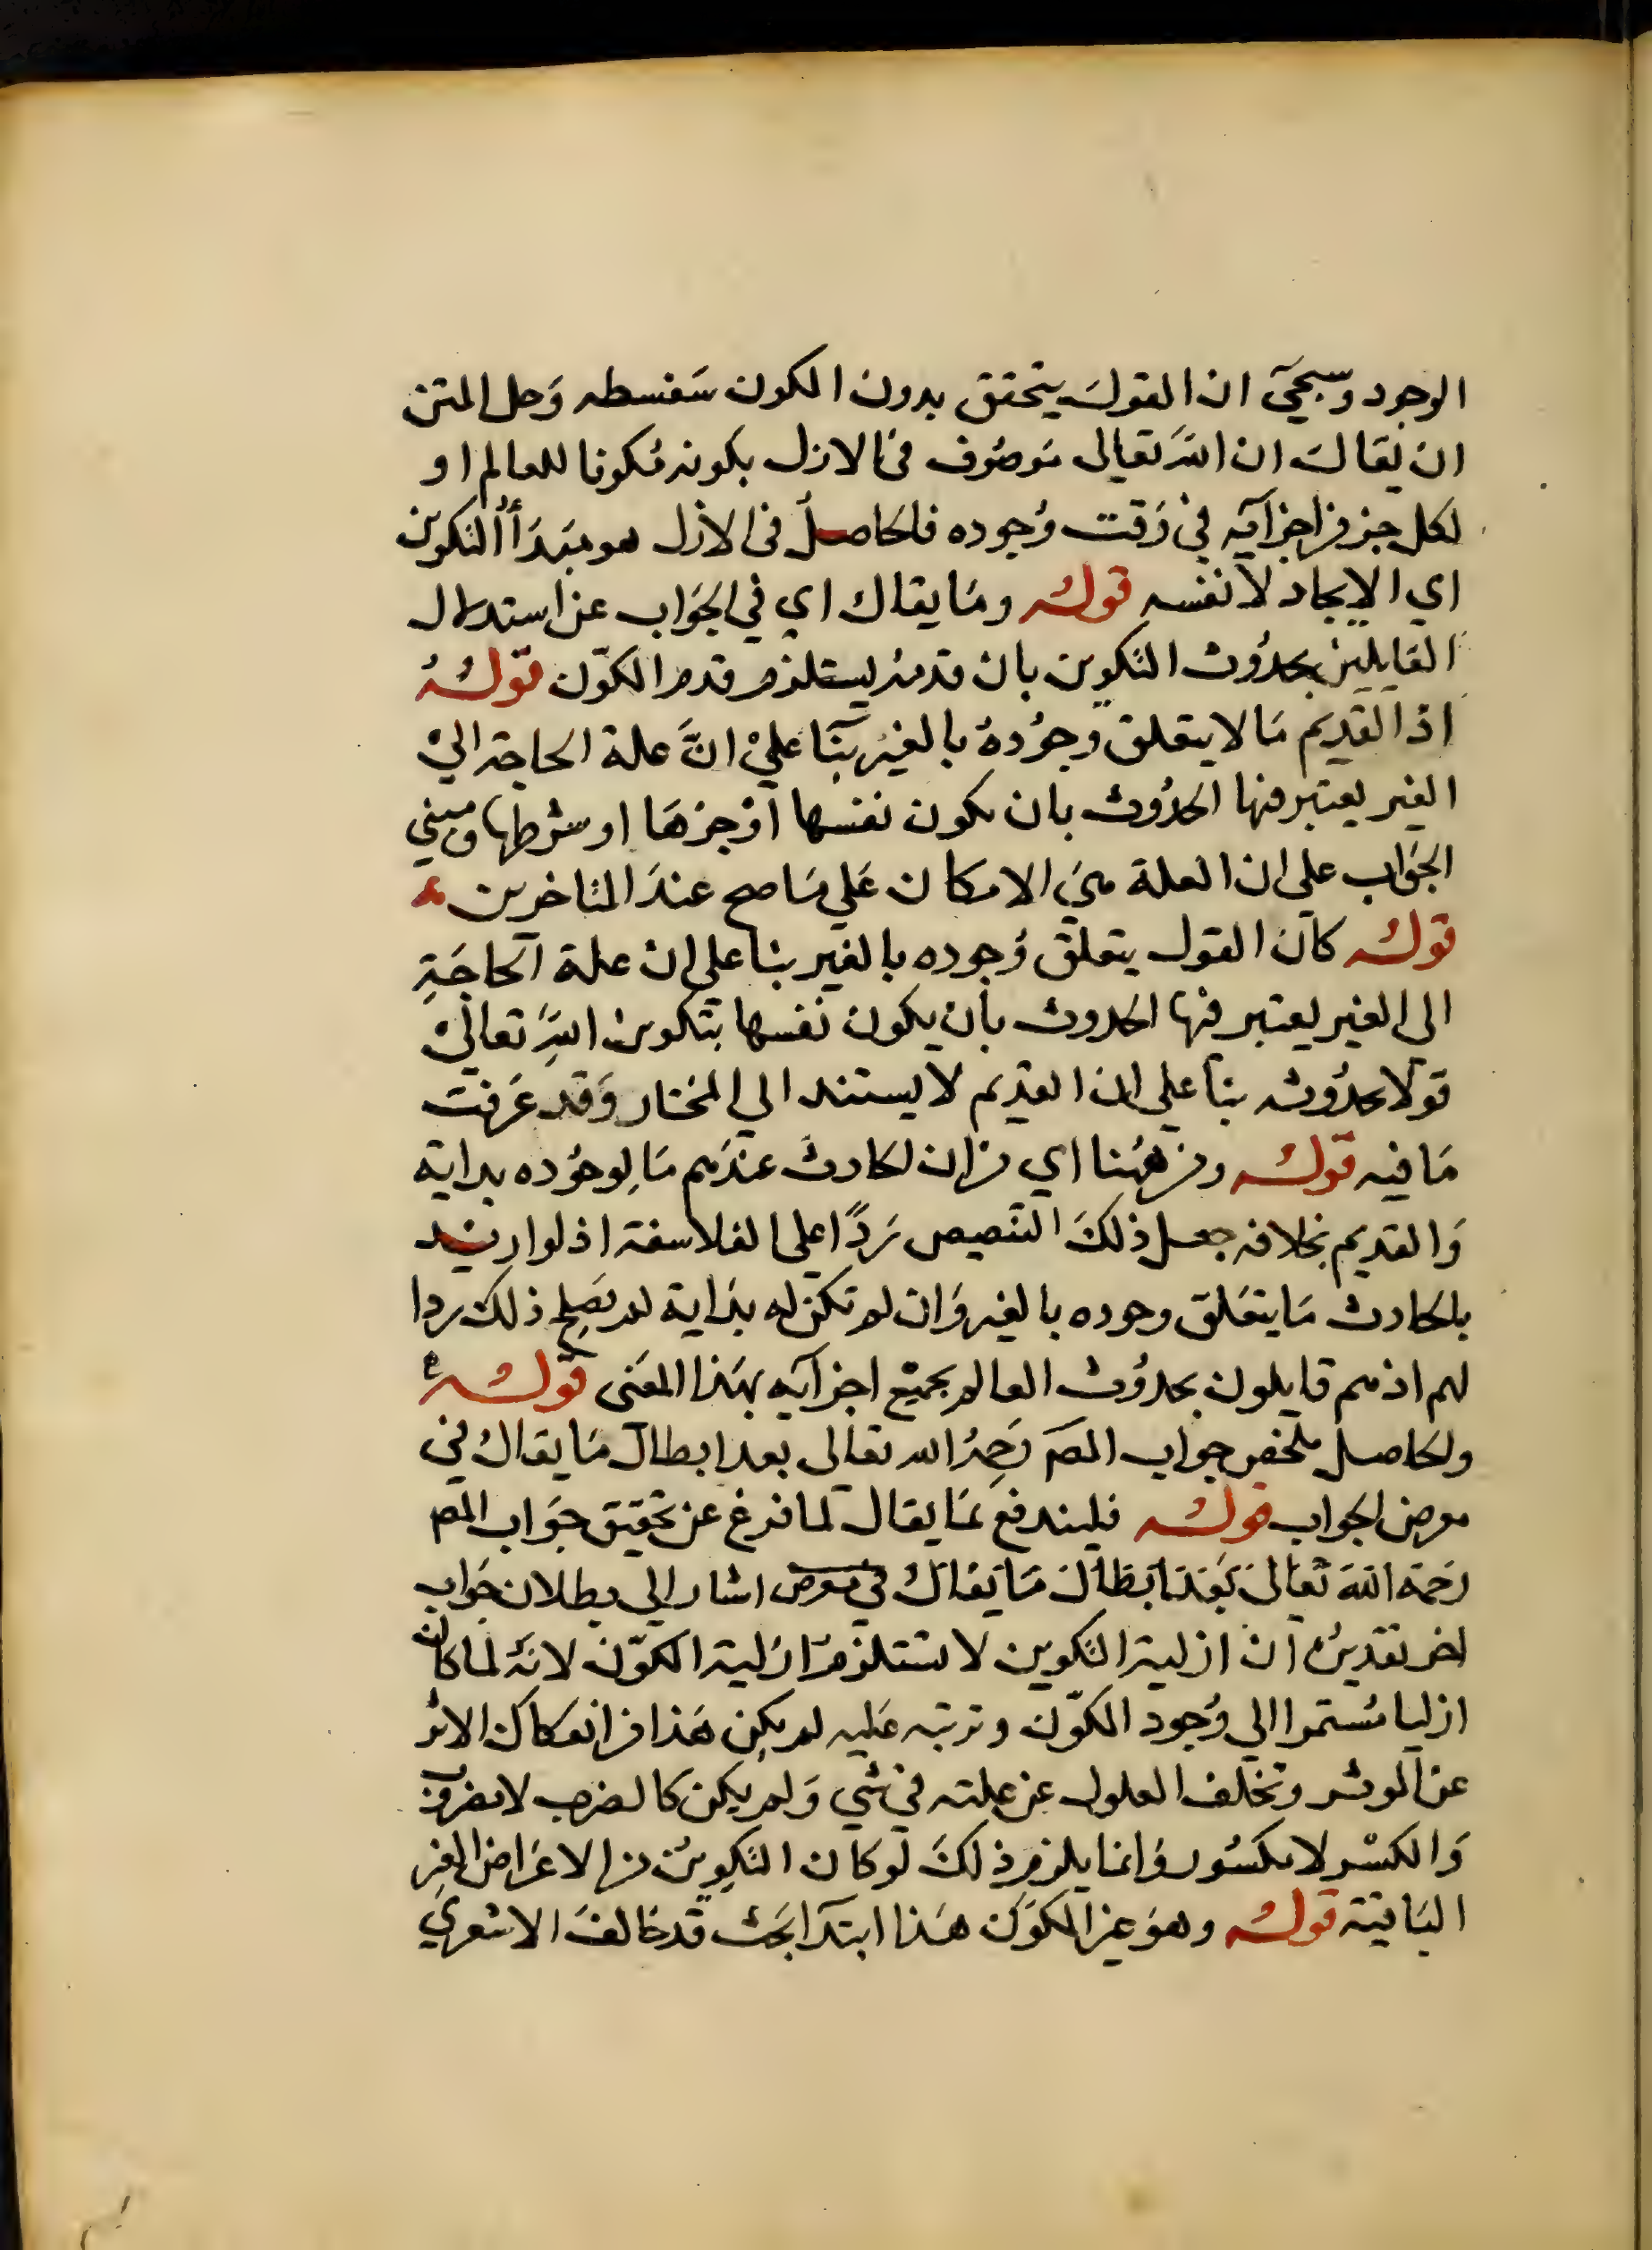 الوجود وسيجئ ان القول يتحقق بدون الكون سفسطه وحل المتن
ان يقال ان الله تعالى موصوف في الازل بكونه مكونا للعالم او
لكل جزء من اجزائه في وقت وجوده فالحاصل في الازل هو مبدأ التكوين
اي الايجاد لا نفسه قوله وما يقال اي في الجواب عن استدلال
القايلين بحدوث التكوين بان قدمه يستلزم قدم المكون قوله
اذ القديم ما لا يتعلق وجوده بالغير بنآ علي ان علة الحاجة الي
الغير يعتبر فيها الحدوث بان يكون نفسها او جزها او شرطها ومبني
الجواب على ان العلة هي الامكان علي ما صح عند المتاخرين
قوله كان القول يتعلق وجوده بالغير بنا علي ان علة الحاجة
الى الغير يعتبر فيها الحدوث بان يكون نفسها بتكوين الله تعالي
قولا بحدوثه بنآ علي ان القديم لا يستند الي المختار وقد عرفت
ما فيه قوله ومن ههنا اي من ان الحادث عندهم ما لوجوده بداية
والقديم بخلافه جعل ذلك التنصيص ردًا على الفلاسفة اذ لو اريد
بالحادث ما يتعلق وجوده بالغير وان لم تكن له بداية لم يصلح ذلك ردا
لهم اذ هم قايلون بحدوث العالم بجميع اجزآيه بهذا المعنى قوله
والحاصل ملخص جواب المصـ رحمه الله تعالى بعد ابطال ما يقال في
معرض الجواب قوله فليندفع بما يقال لما فرغ عن تحقيق جواب المصـ
رحمه الله تعالى بعد ابطال ما يقال في معرض اشار الي بطلان جواب
اخر تقديره ان ازلية التكوين لا تستلزم ازلية المكوّن لانه لما كان
ازليا مستمرا الي وجود المكوّن وترتبه عليه لم يكن هذا من انفكاك الاثر
عن الموثر وتخلف المعلول عن علته في شي ولم يكن كالضرب لا مضروب
والكسر لا مكسور وانما يلزم ذلك لو كان التكوين من الاعراض الغير
الباقية قوله وهو غير المكوّن هذا ابتدآ بحث قد خالف الاشعري